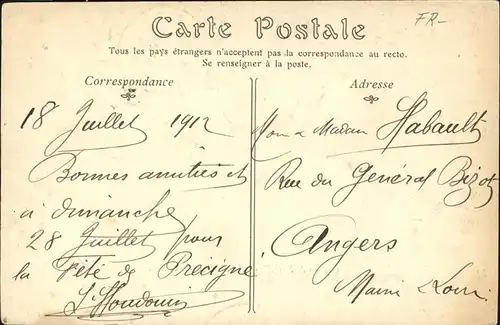 FR-
Carte Postale
Tous les pays étrangers n'acceptent pas la correspondance au recto.
Se renseigner à la poste.
Correspondance
18 Juillet 1912
Bonnes amitiés et
à dimanche
28 Juillet pour
la Fête de Precigné
Adresse
Habault
Rue du Général Bizot
Angers
Maine & Loire